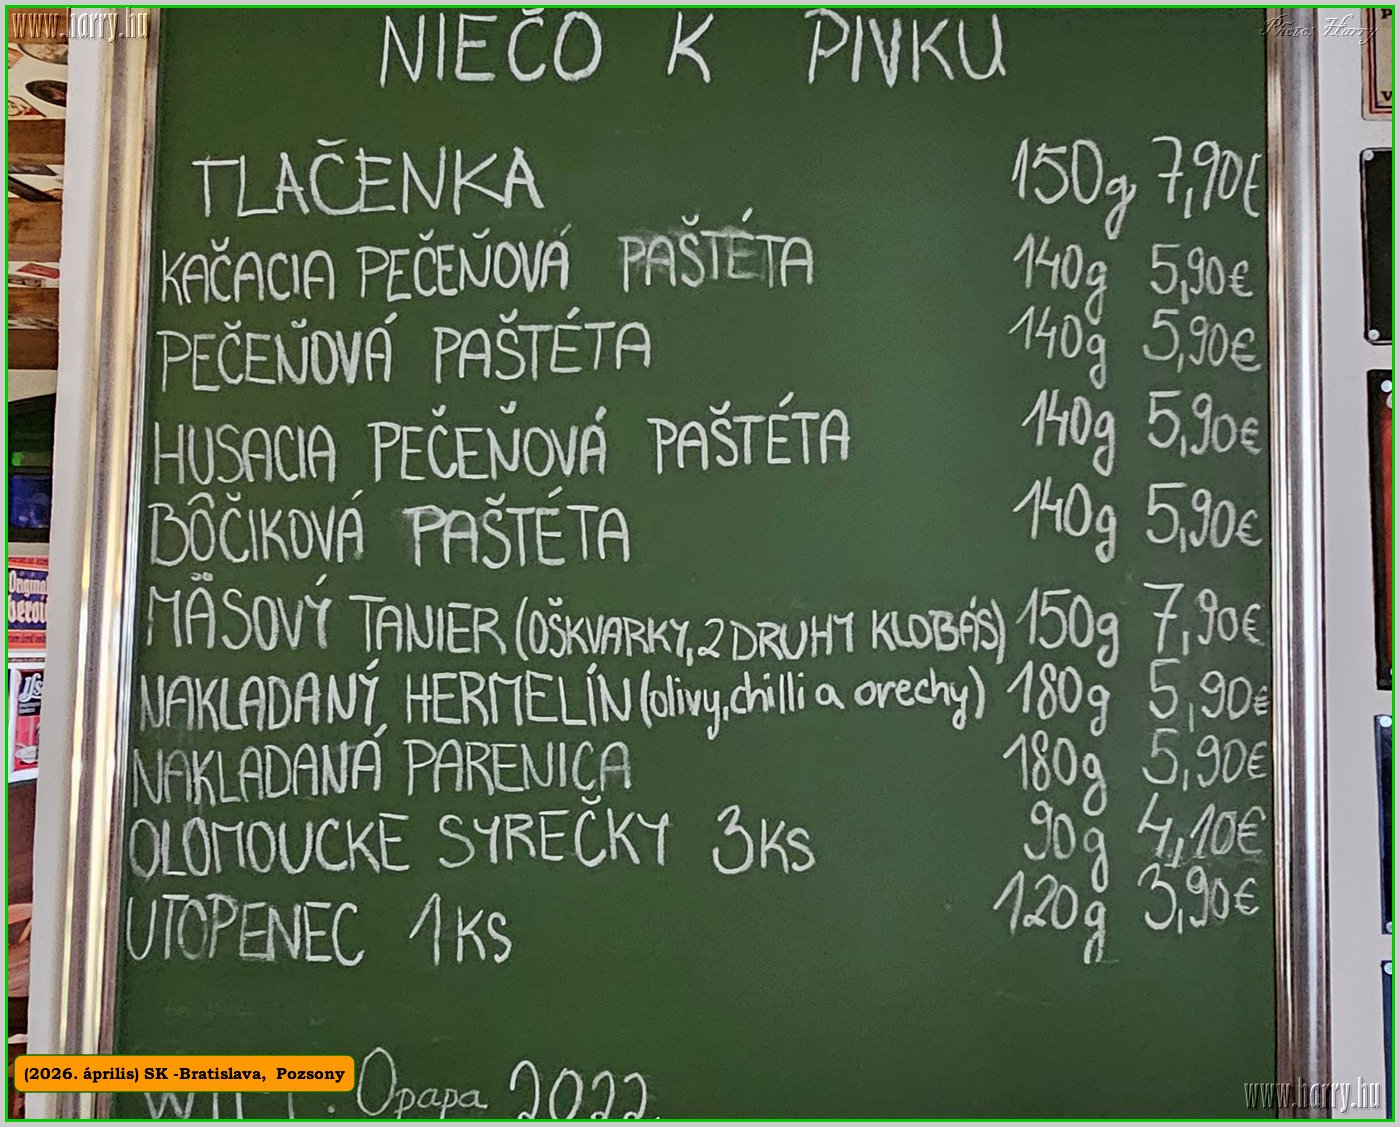 www.harry.hu
Photos Harry
NIEČO K PIVKU
TLAČENKA 150g 7,90€
KAČACIA PEČEŇOVÁ PAŠTÉTA 140g 5,90€
PEČEŇOVÁ PAŠTÉTA 140g 5,90€
HUSACIA PEČEŇOVÁ PAŠTÉTA 140g 5,90€
BÔČIKOVÁ PAŠTÉTA 140g 5,90€
MÄSOVÝ TANIER (OŠKVARKY, 2 DRUHY KLOBÁS) 150g 7,90€
NAKLADANÝ HERMELÍN (olivy, chilli a orechy) 180g 5,90€
NAKLADANÁ PARENICA 180g 5,90€
OLOMOUCKE SYREČKY 3KS 90g 4,10€
UTOPENEC 1KS 120g 3,90€
Original
(2026. április) SK -Bratislava, Pozsony
Opapa 2022
www.harry.hu